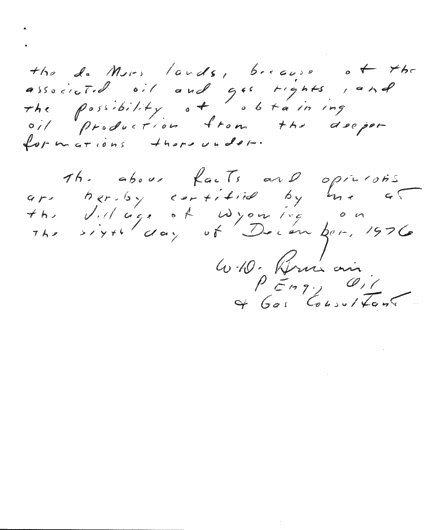 the de Mers lands, because of the
associated oil and gas rights, and
the possibility of obtaining
oil production from the deeper
formations thereunder.
The above facts and opinions
are hereby certified by me at
the Village of Wyoming on
the sixth day of December, 1976
W.D.
P Eng., Oil
& Gas Consultant